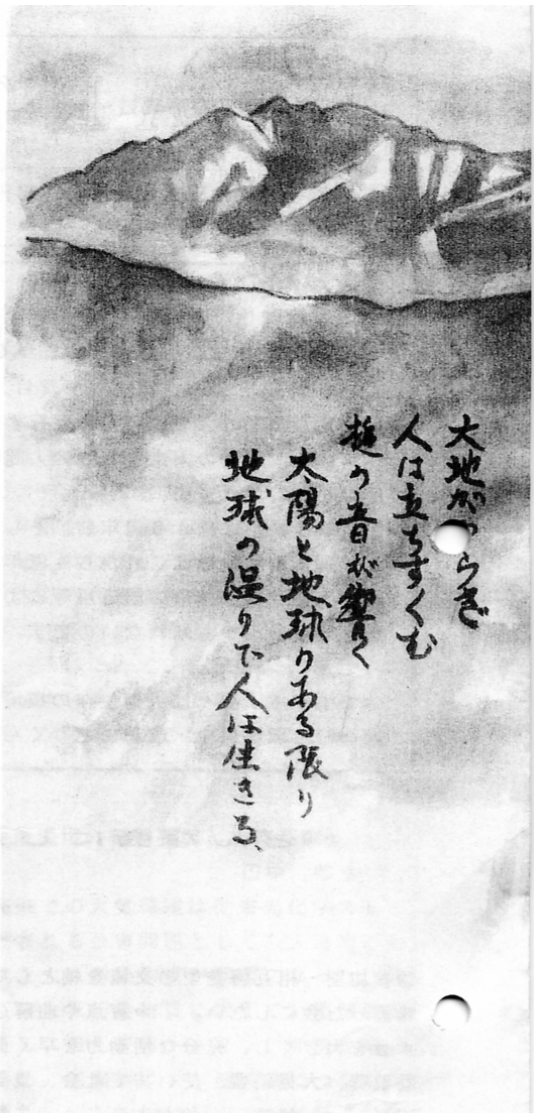 大地がゆらぎ
人は立ちすくむ
槌の音が響く
太陽と地球のある限り
地球の温りで人は生きる、